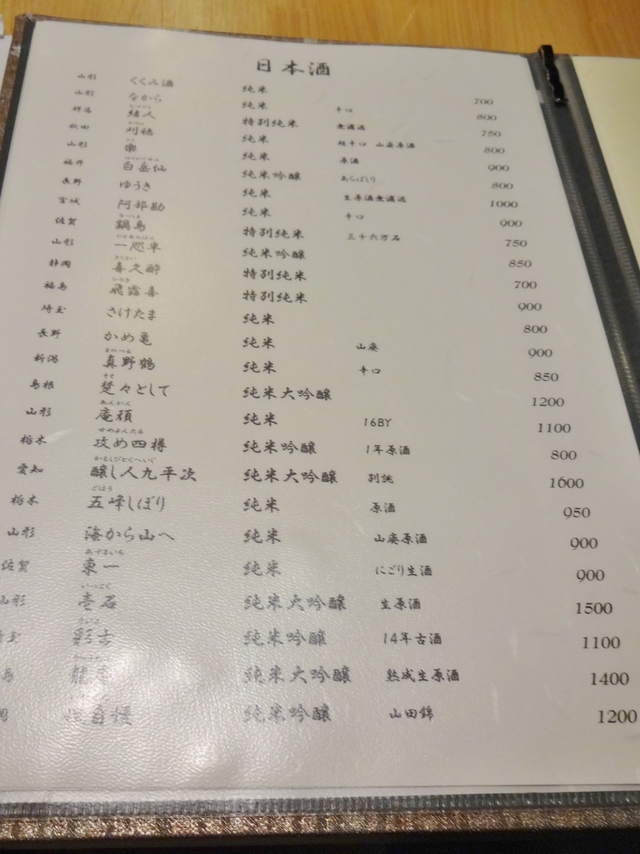 日本酒
山形 くくみ酒 純米 700
山形 なから 純米 辛口 800
群馬 結人 特別純米 無濾過 750
秋田 刈穂 純米 超辛口 山廃原酒 800
山形 樂 純米 原酒 900
福井 白岳仙 純米吟醸 あらばしり 800
長野 ゆうき 純米 生原酒無濾過 1000
宮城 阿部勘 純米 辛口 900
佐賀 鍋島 特別純米 三十六万石 750
山形 純米吟醸 850
静岡 喜久酔 特別純米 700
福島 飛露喜 特別純米 900
埼玉 さけたま 純米 800
長野 かめ亀 純米 山廃 900
新潟 真野鶴 純米 辛口 850
島根 楚々として 純米大吟醸 1200
山形 純米 16BY 1100
栃木 攻め四樽 純米吟醸 1年原酒 800
愛知 醸し人九平次 純米大吟醸 別誂 1600
栃木 五峰しぼり 純米 原酒 950
山形 海から山へ 純米 山廃原酒 900
佐賀 東一 純米 にごり生酒 900
山形 壱石 純米大吟醸 生原酒 1500
玉 彩古 純米吟醸 14年古酒 1100
島 純米大吟醸 熟成生原酒 1400
岡 純米吟醸 山田錦 1200